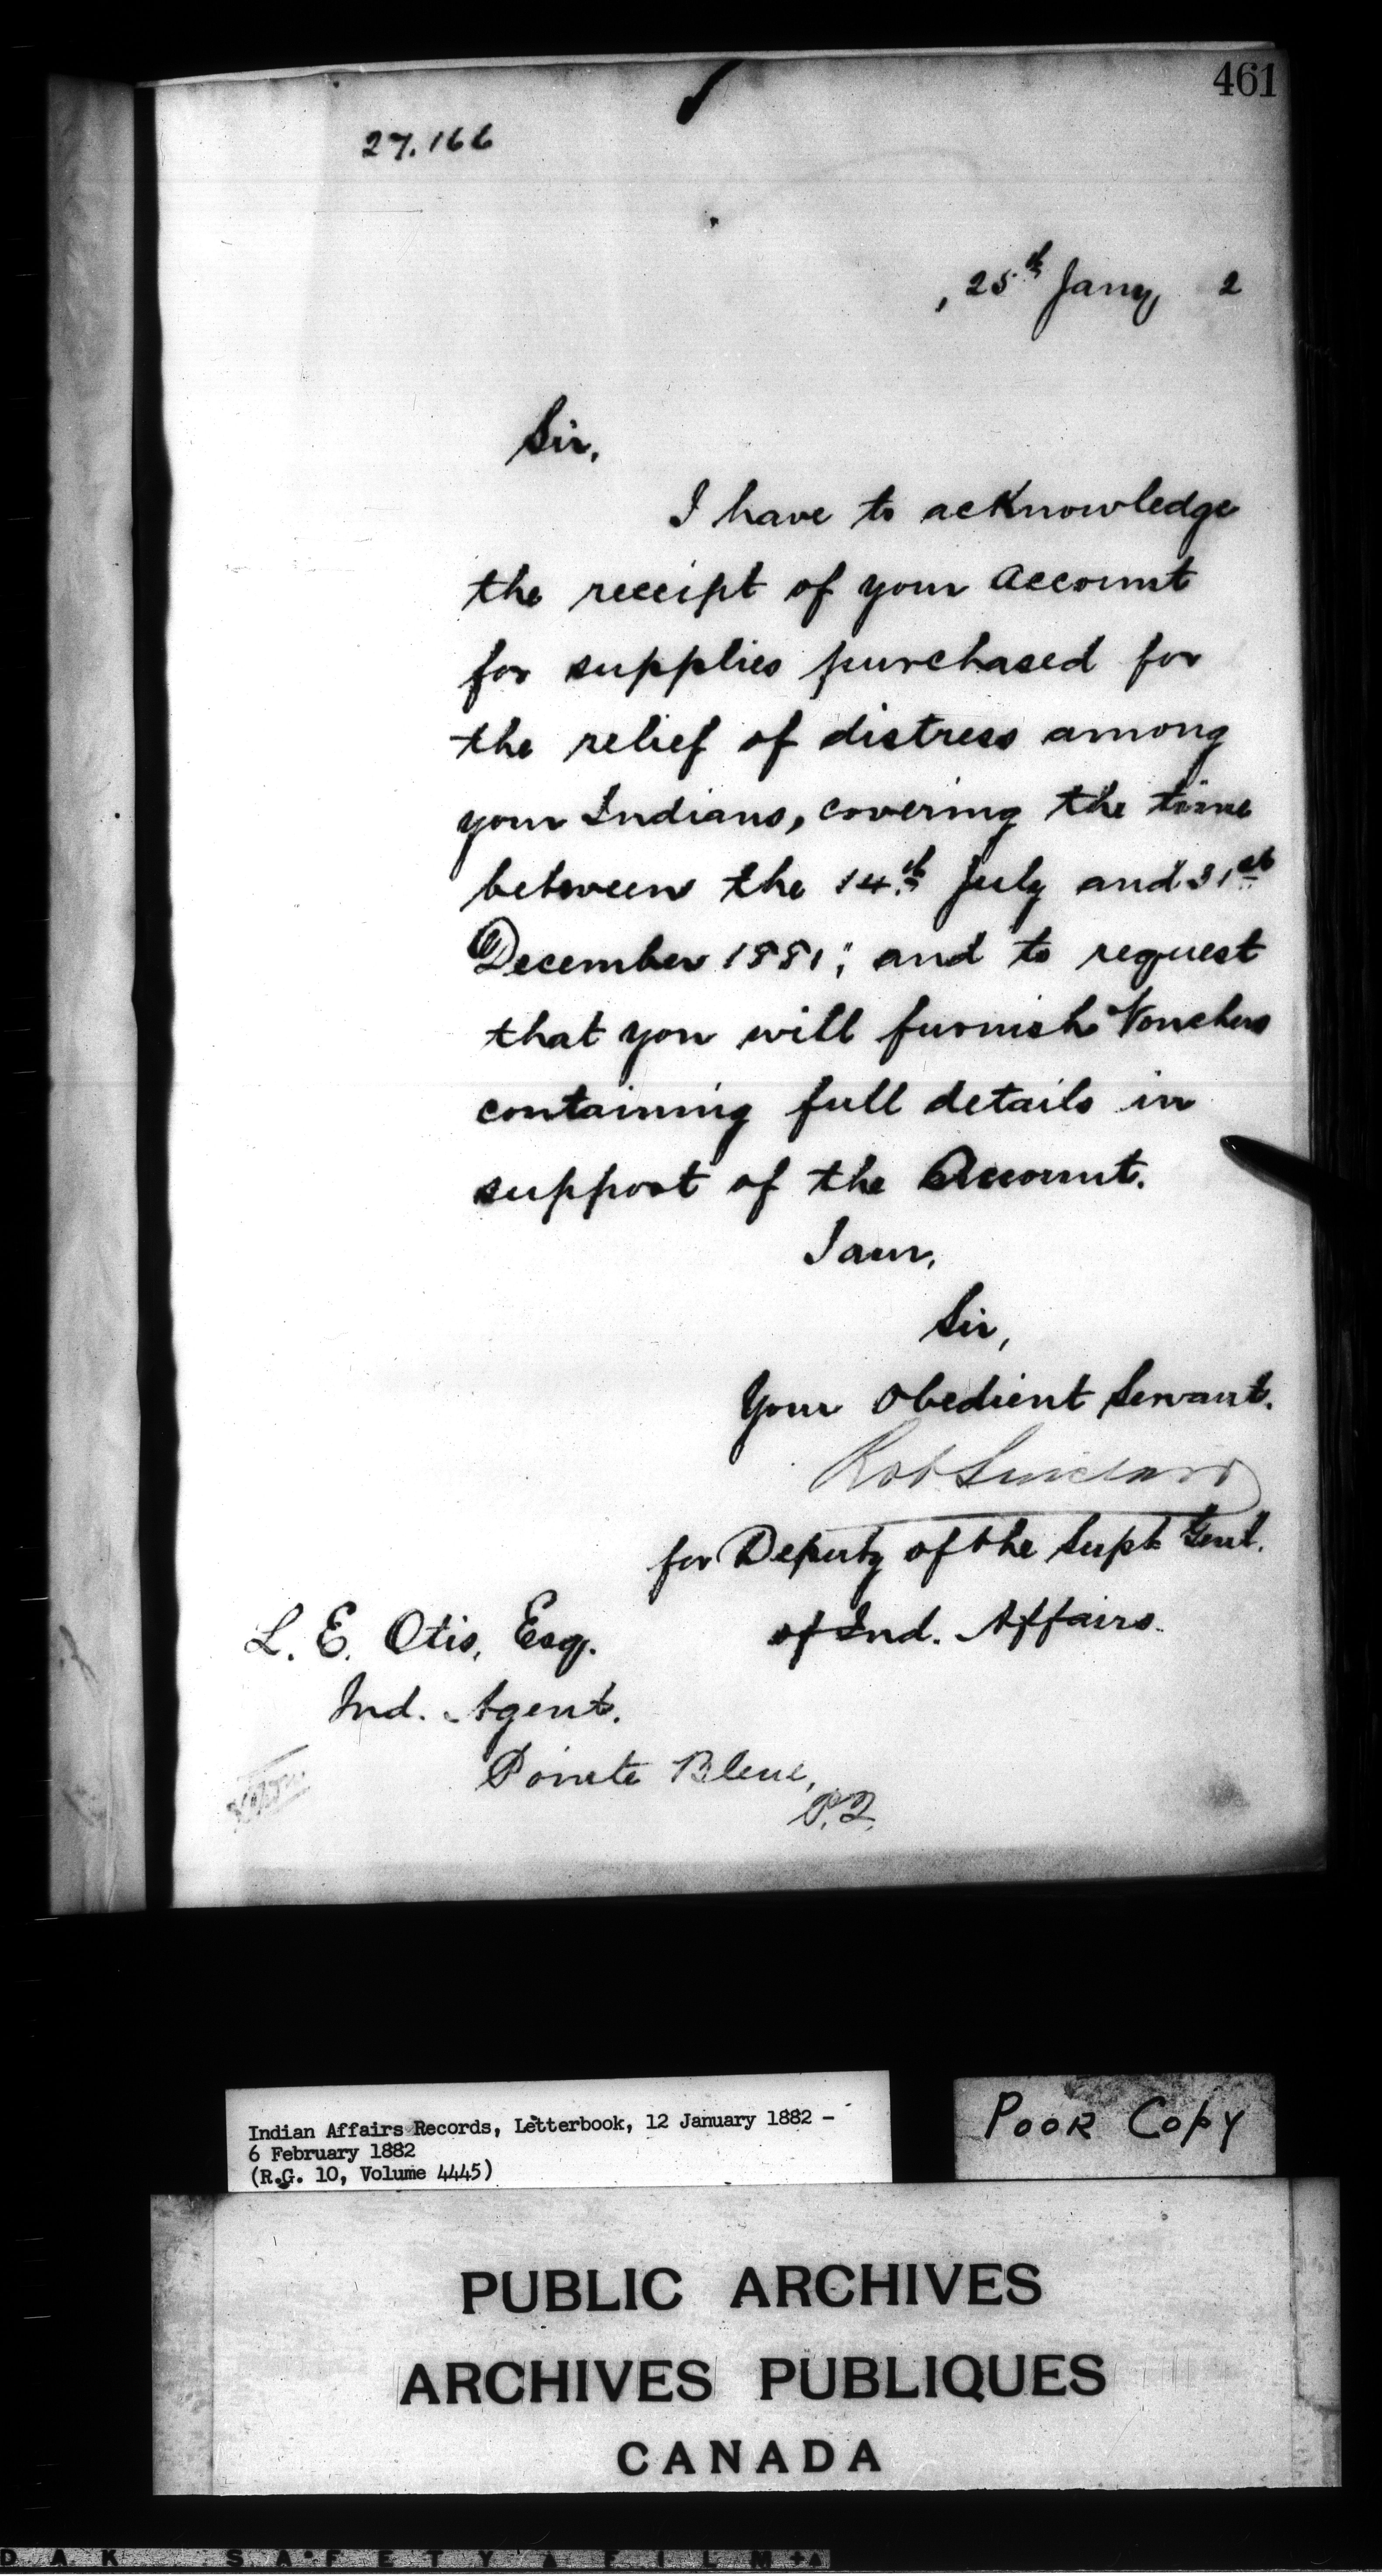 461
27.166
, 25th Jany, 2
Sir,
I have to acknowledge
the receipt of your Account
for supplies purchased for
the relief of distress among
your Indians, covering the time
between the 14th July and 31st
December 1881; and to request
that you will furnish Vouchers
containing full details in
support of the Account.
I am,
Sir,
Your Obedient Servant.
Rob Sinclair
for Deputy of the Supt Genl.
of Ind. Affairs.
L. E. Otis, Esq.
Ind. Agent.
Pointe Bleue,
P.Q.
Indian Affairs Records, Letterbook, 12 January 1882 -
6 February 1882
(R.G. 10, Volume 4445)
POOR COPY
PUBLIC ARCHIVES
ARCHIVES PUBLIQUES
CANADA
DAK SAFETY FILM